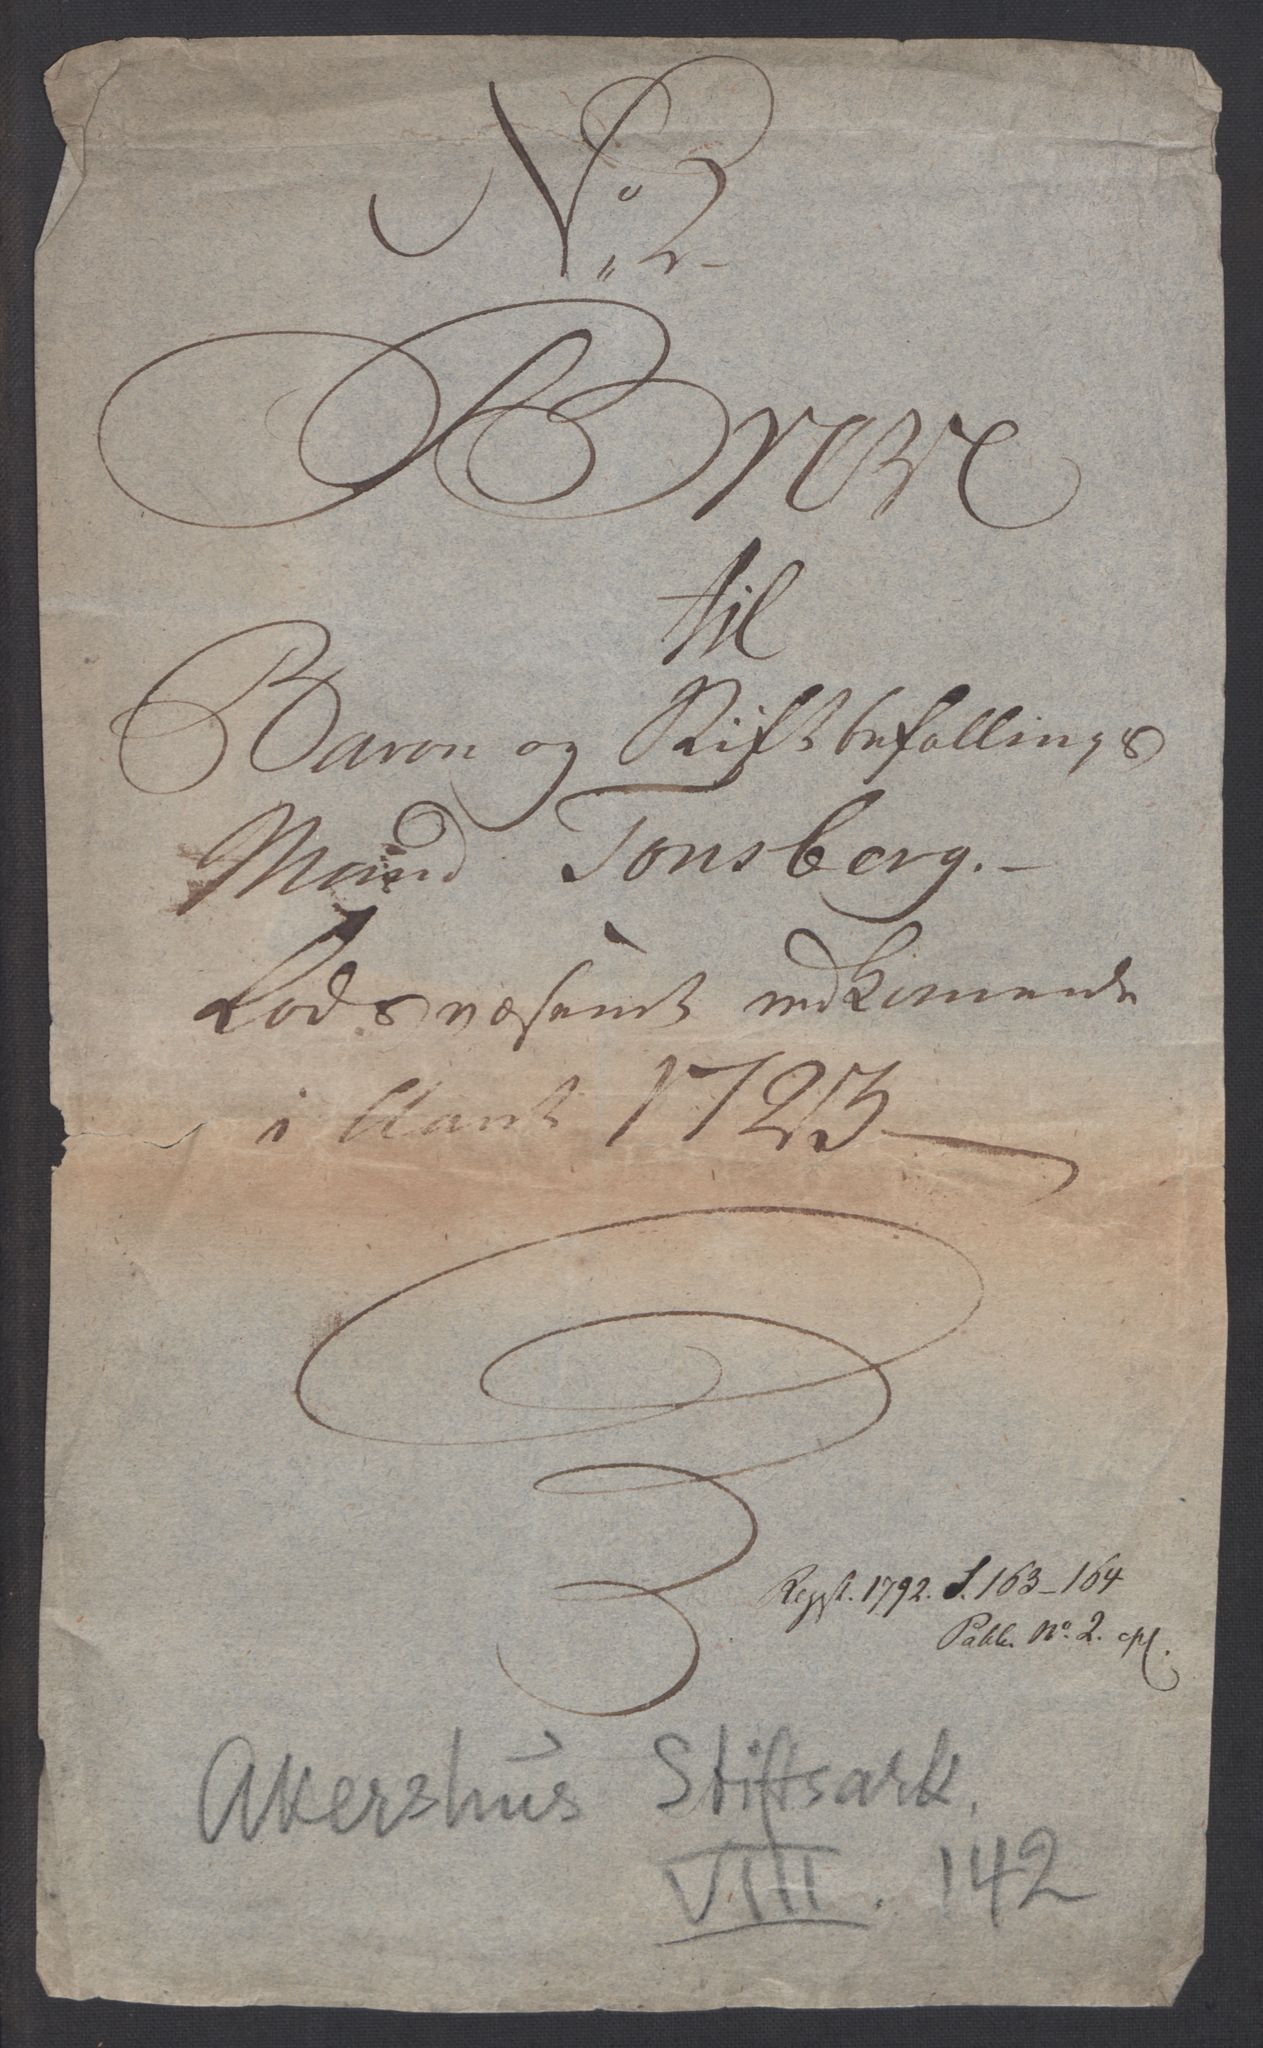 No. 2
Breve
til
Baron og Stiftbefallings
Mand Tonsberg.
Lodsvæsenet vedkommende
i Aaret 1723
Regist. 1792. S. 163-164
Pakke No. 2.
Akershus Stiftsark.
VIII. 142